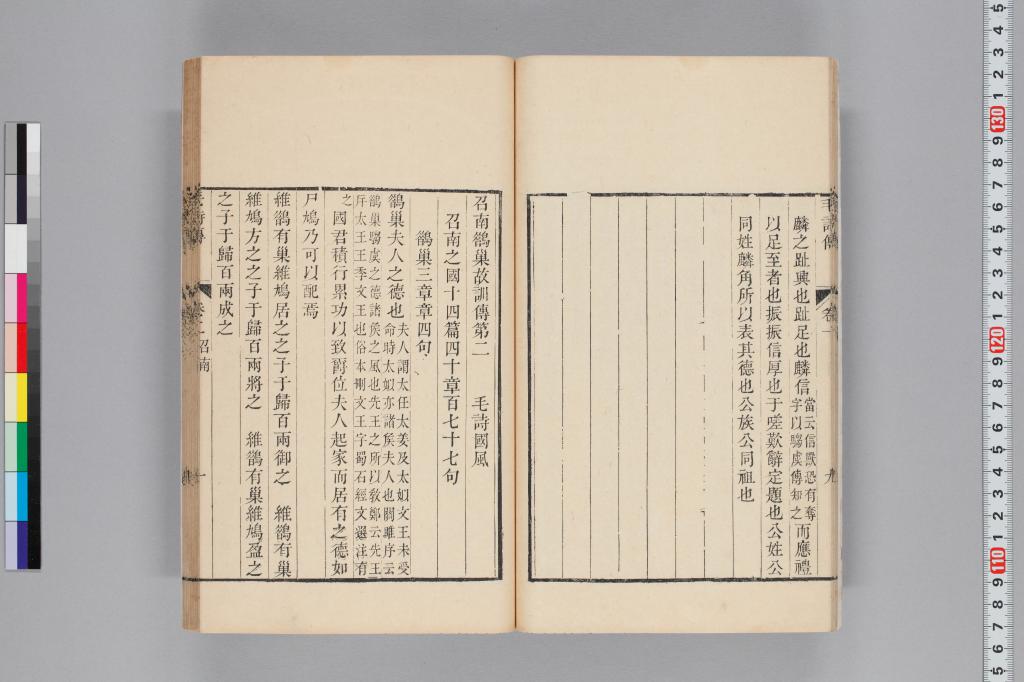 毛詩傳
卷一
九
麟之趾興也趾足也麟信當云信獸恐有奪字以騶虞傳知之而應禮
以足至者也振振信厚也于嗟歎辭定題也公姓公
同姓麟角所以表其德也公族公同祖也
召南鵲巢故訓傳第二 毛詩國風
召南之國十四篇四十章百七十七句
鵲巢三章章四句
鵲巢夫人之德也夫人謂太任太姜及太姒文王未受命時太姒亦諸矦夫人也關雎序云
鵲巢騶虞之德諸矦之風也先王之所以敎鄭云先王斥太王王季文王也俗本刪文王字蜀石經文選注有
之國君積行累功以致爵位夫人起家而居有之德如
尸鳩乃可以配焉
維鵲有巢維鳩居之之子于歸百兩御之 維鵲有巢
維鳩方之之子于歸百兩將之 維鵲有巢維鳩盈之
之子于歸百兩成之
卷二召南
一
5
4
3
2
1
130
9
8
7
6
5
4
3
2
1
120
9
8
7
6
5
4
3
2
1
110
9
8
7
6
5